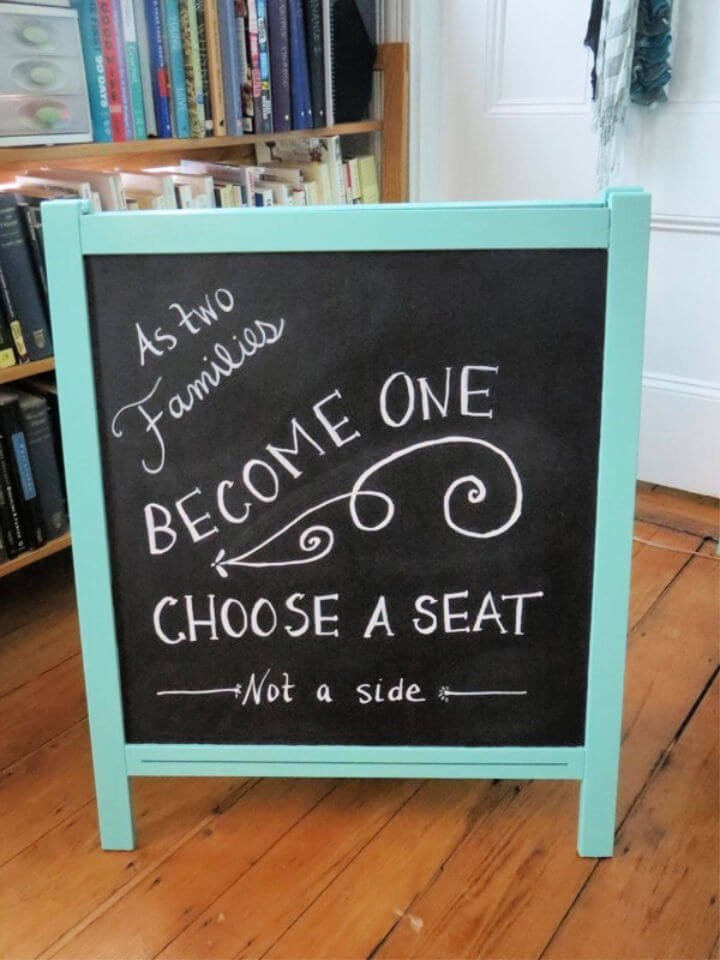 As two
Families
BECOME ONE
CHOOSE A SEAT
Not a side